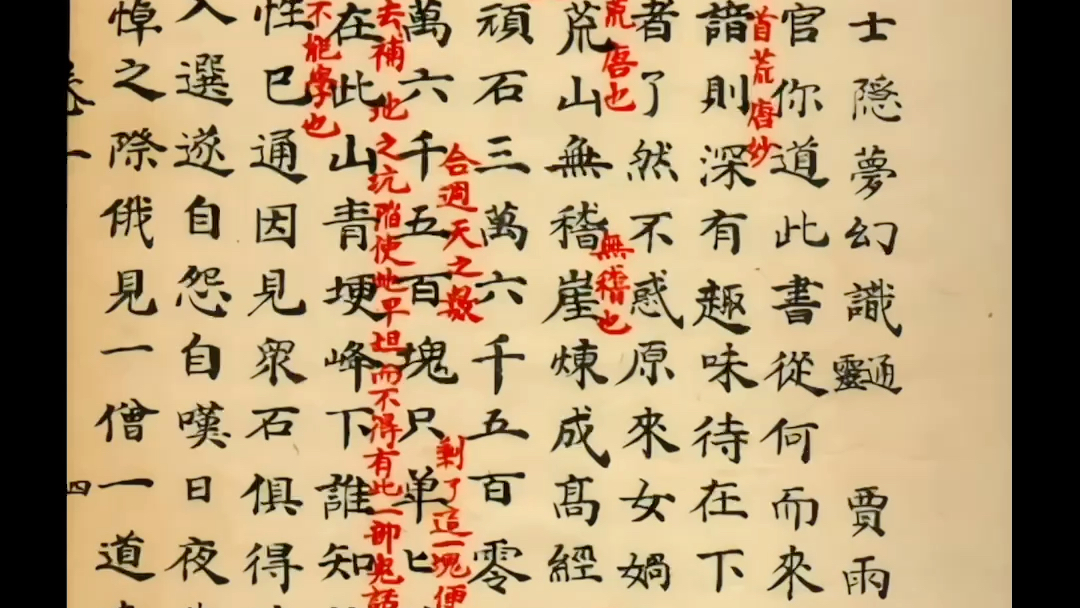 士隱夢幻識通靈 賈雨
官你道此書從何而來
首荒唐妙
諳則深有趣味待在下
者了然不惑原來女媧
荒唐也
無稽也
荒山無稽崖煉成高經
頑石三萬六千五百零
合週天之數
剩了這一塊便
萬六千五百塊只单
去補地之坑陷使地平坦而不得有此一部鬼話
在此山青埂峰下誰知
不能學也
性巳通因見眾石俱得
入選遂自怨自嘆日夜
悼之際俄見一僧一道
卷一
四